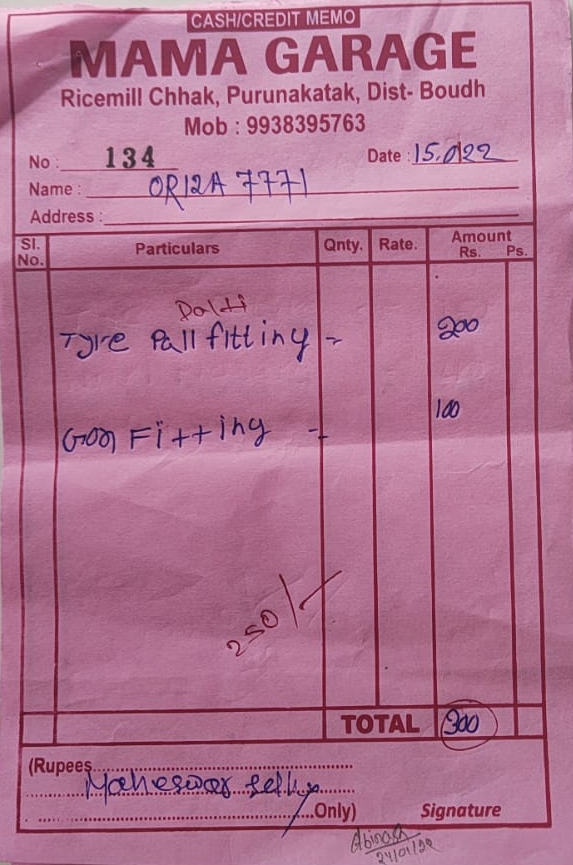 CASH/CREDIT MEMO
MAMA GARAGE
Ricemill Chhak, Purunakatak, Dist- Boudh
Mob : 9938395763
No : 134 Date : 15.0122
Name : OR12A 7771
Address :
Sl. No. Particulars Qnty. Rate. Amount Rs. Ps.
Tyre Pall fitting - 200
Goon Fitting - 100
250/-
TOTAL 300
(Rupees
Maheswar
Only) Signature
Abinash
24/01/22